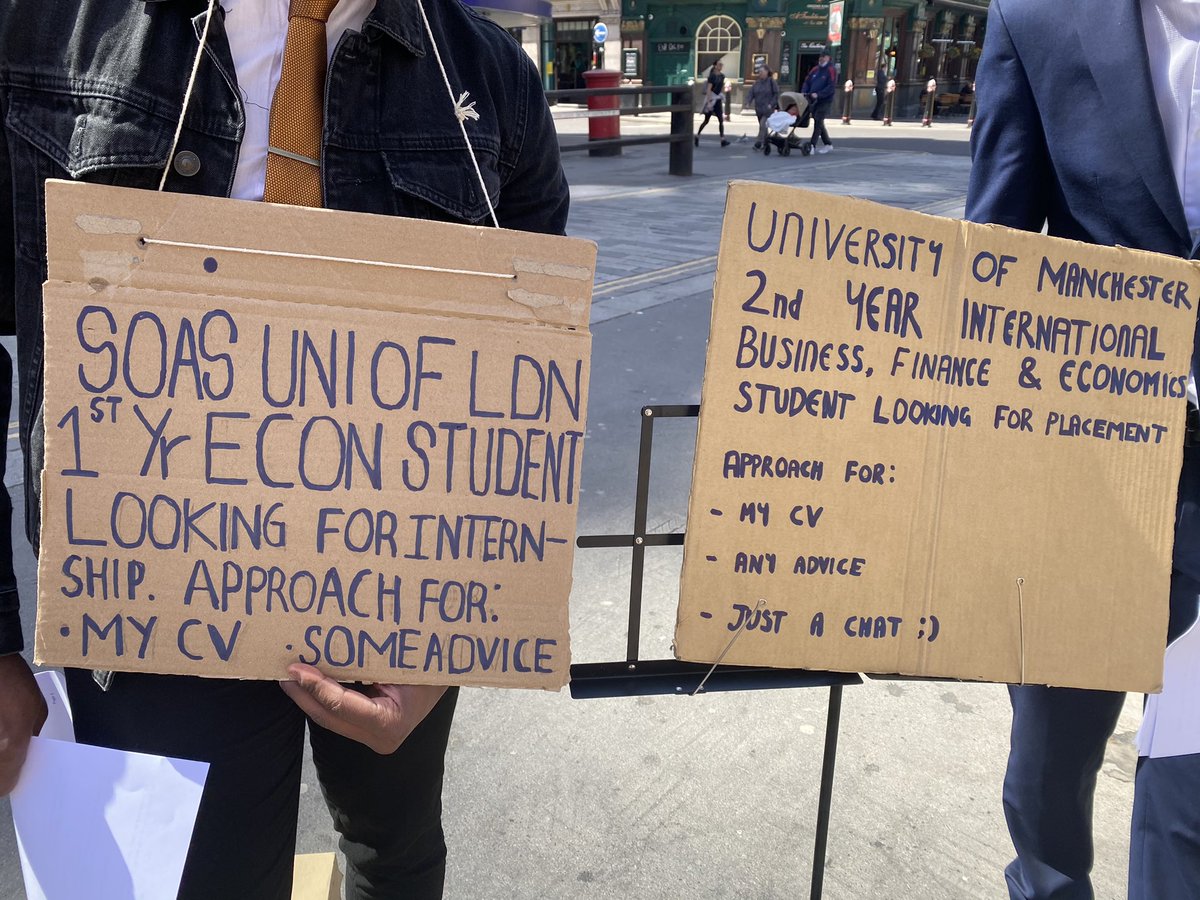 SOAS UNI OF LDN
1ST Yr ECON STUDENT
LOOKING FOR INTERN-
SHIP. APPROACH FOR:
• MY CV • SOME ADVICE
UNIVERSITY OF MANCHESTER
2nd YEAR INTERNATIONAL
BUSINESS, FINANCE & ECONOMICS
STUDENT LOOKING FOR PLACEMENT
APPROACH FOR:
- MY CV
- ANY ADVICE
- JUST A CHAT ;)